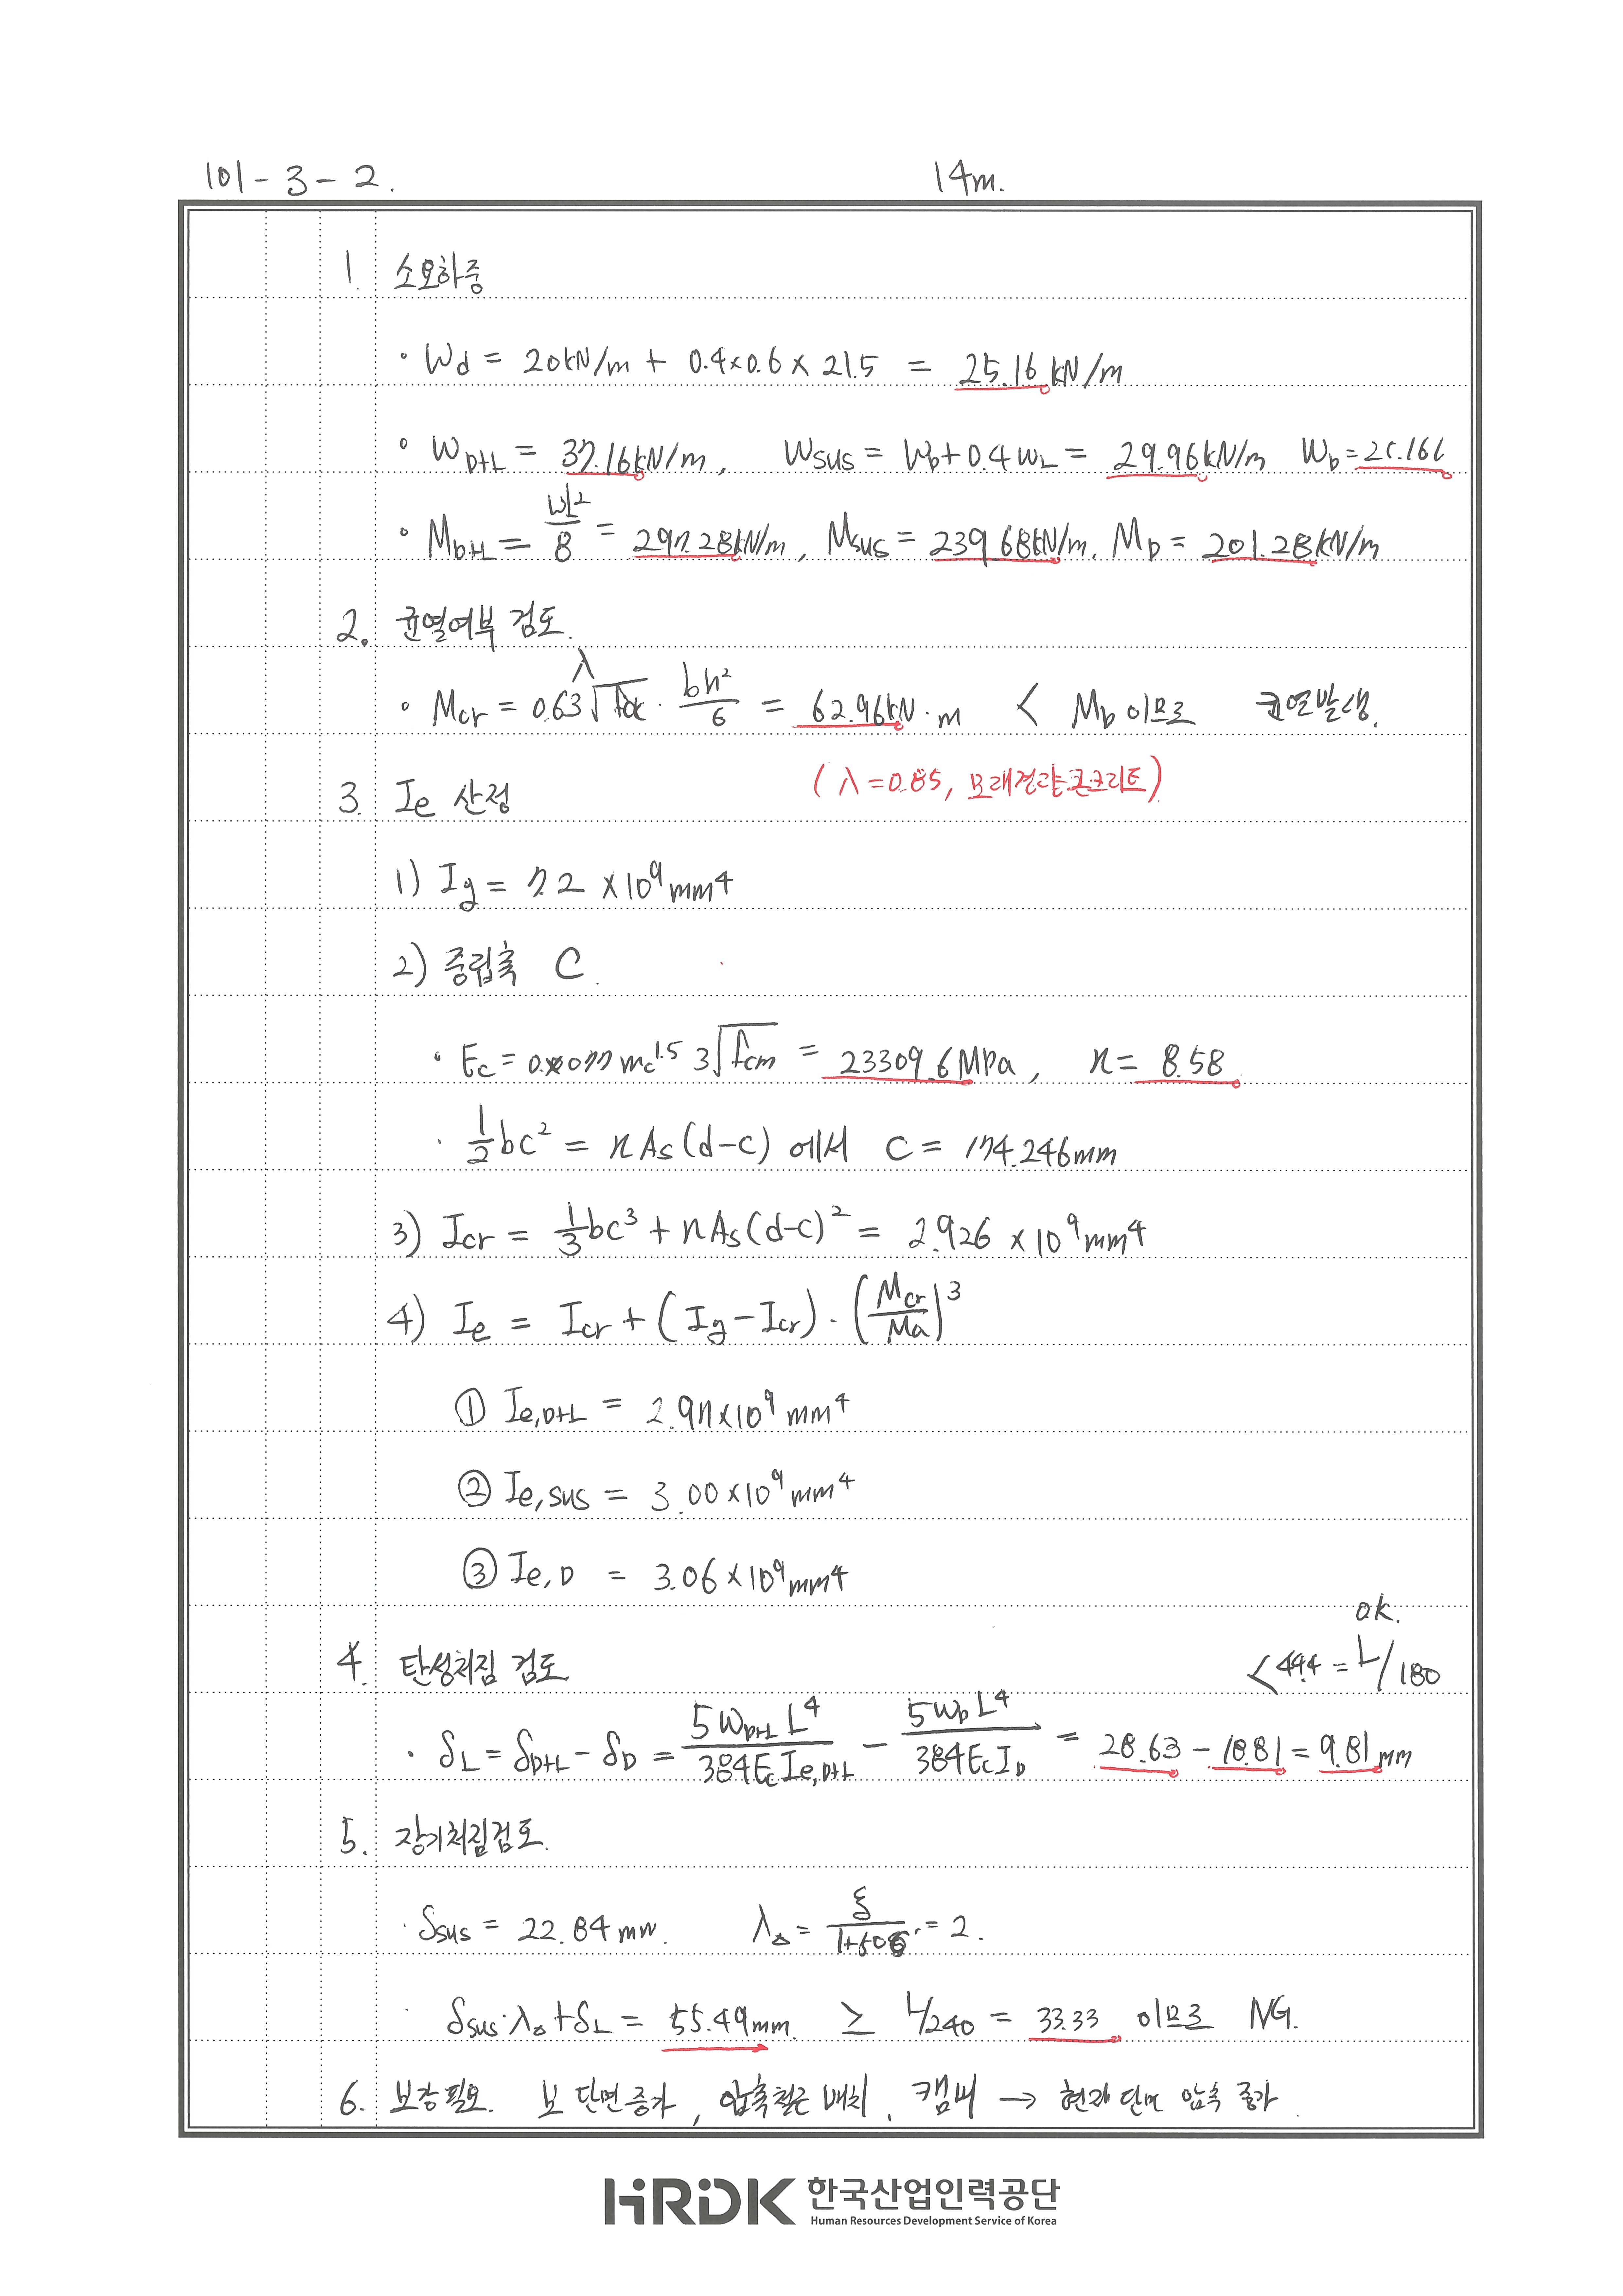 101 - 3 - 2. 14m.
1. 소요하중
· Wd = 20kN/m + 0.4×0.6×21.5 = 25.16 kN/m
· WD+L = 37.16kN/m, WSUS = WD+0.4WL = 29.96kN/m WD=25.16
· MD+L = wl²/8 = 297.28kN/m, Msus = 239.68kN/m. MD = 201.28kN/m
2. 균열여부 검토.
· Mcr = 0.63λ√fck · bh²/6 = 62.96kN·m < MD 이므로 균열발생.
(λ=0.85, 모래경량콘크리트)
3. Ie 산정
1) Ig = 7.2 ×10⁹mm⁴
2) 중립축 C.
· Ec = 0.077 mc^1.5 3√fcm = 23309.6MPa, n = 8.58
· 1/2 bc² = nAs(d-c) 에서 C = 174.246mm
3) Icr = 1/3 bc³ + nAs(d-c)² = 2.926 ×10⁹mm⁴
4) Ie = Icr + (Ig-Icr)·(Mcr/Ma)³
① Ie,D+L = 2.97×10⁹ mm⁴
② Ie,sus = 3.00×10⁹mm⁴
③ Ie,D = 3.06×10⁹mm⁴
ok.
4. 탄성처짐 검토 <44.4 = L/180
· δL = δD+L - δD = 5WD+L L⁴/384EcIe,D+L - 5WD L⁴/384EcID = 28.63 - 18.81 = 9.81mm
5. 장기처짐검토.
· δsus = 22.84mm. λΔ = ξ/1+50ρ' = 2.
· δsus·λΔ+δL = 55.49mm ≥ L/240 = 33.33 이므로 NG.
6. 보강필요. 보 단면증가, 압축철근 배치, 캠버 → 현재 단면 압축 증가.
HRDK 한국산업인력공단
Human Resources Development Service of Korea